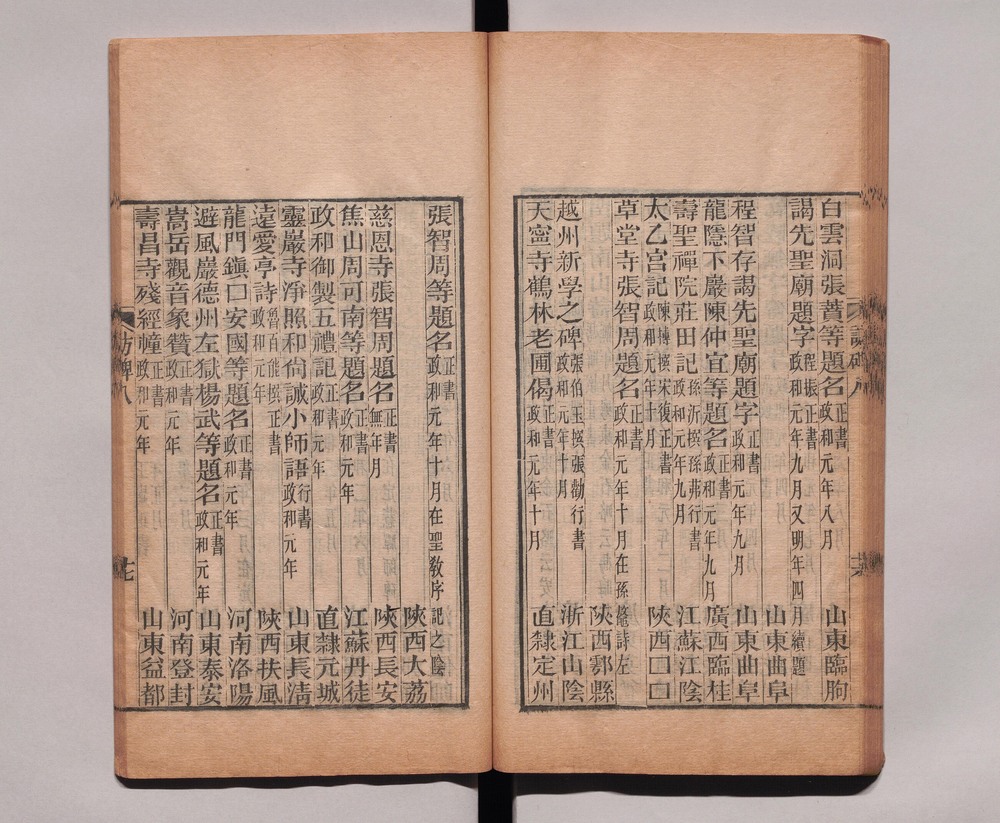 白雲洞張菩等題名 正書 政和元年八月 山東臨朐
謁先聖廟題字 程振正書 政和元年九月又明年四月續題 山東曲阜
程智存謁先聖廟題字 正書 政和元年九月 山東曲阜
龍隱下巖陳仲宜等題名 正書 政和元年九月 廣西臨桂
壽聖禪院莊田記 孫沂撰孫弗行書 政和元年九月 江蘇江陰
太乙宮記 陳摶撰宋復正書 政和元年十月 陝西囗囗
草堂寺張智周題名 正書 政和元年十月在孫
詩左 陝西鄠縣
越州新學之碑 張伯玉撰張勸行書 政和元年十月 浙江山陰
天寧寺鶴林老圃偈 政和元年十月 直隸定州
訪碑八
十六
張智周等題名 正書 政和元年十月在聖敎序記之陰
陝西大荔
慈恩寺張智周題名 正書 無年月 陝西長安
焦山周可南等題名 正書 政和元年 江蘇丹徒
政和御製五禮記 正書 政和元年 直隸元城
靈巖寺淨照和尚誡小師語 行書 政和元年 山東長淸
遠愛亭詩 魯百能撰正書 政和元年 陝西扶風
龍門鎭囗安國等題名 正書 政和元年 河南洛陽
避風巖德州左獄楊武等題名 正書 政和元年 山東泰安
嵩岳觀音象贊 正書 政和元年 河南登封
壽昌寺殘經幢 正書 政和元年 山東益都
訪碑八
十七